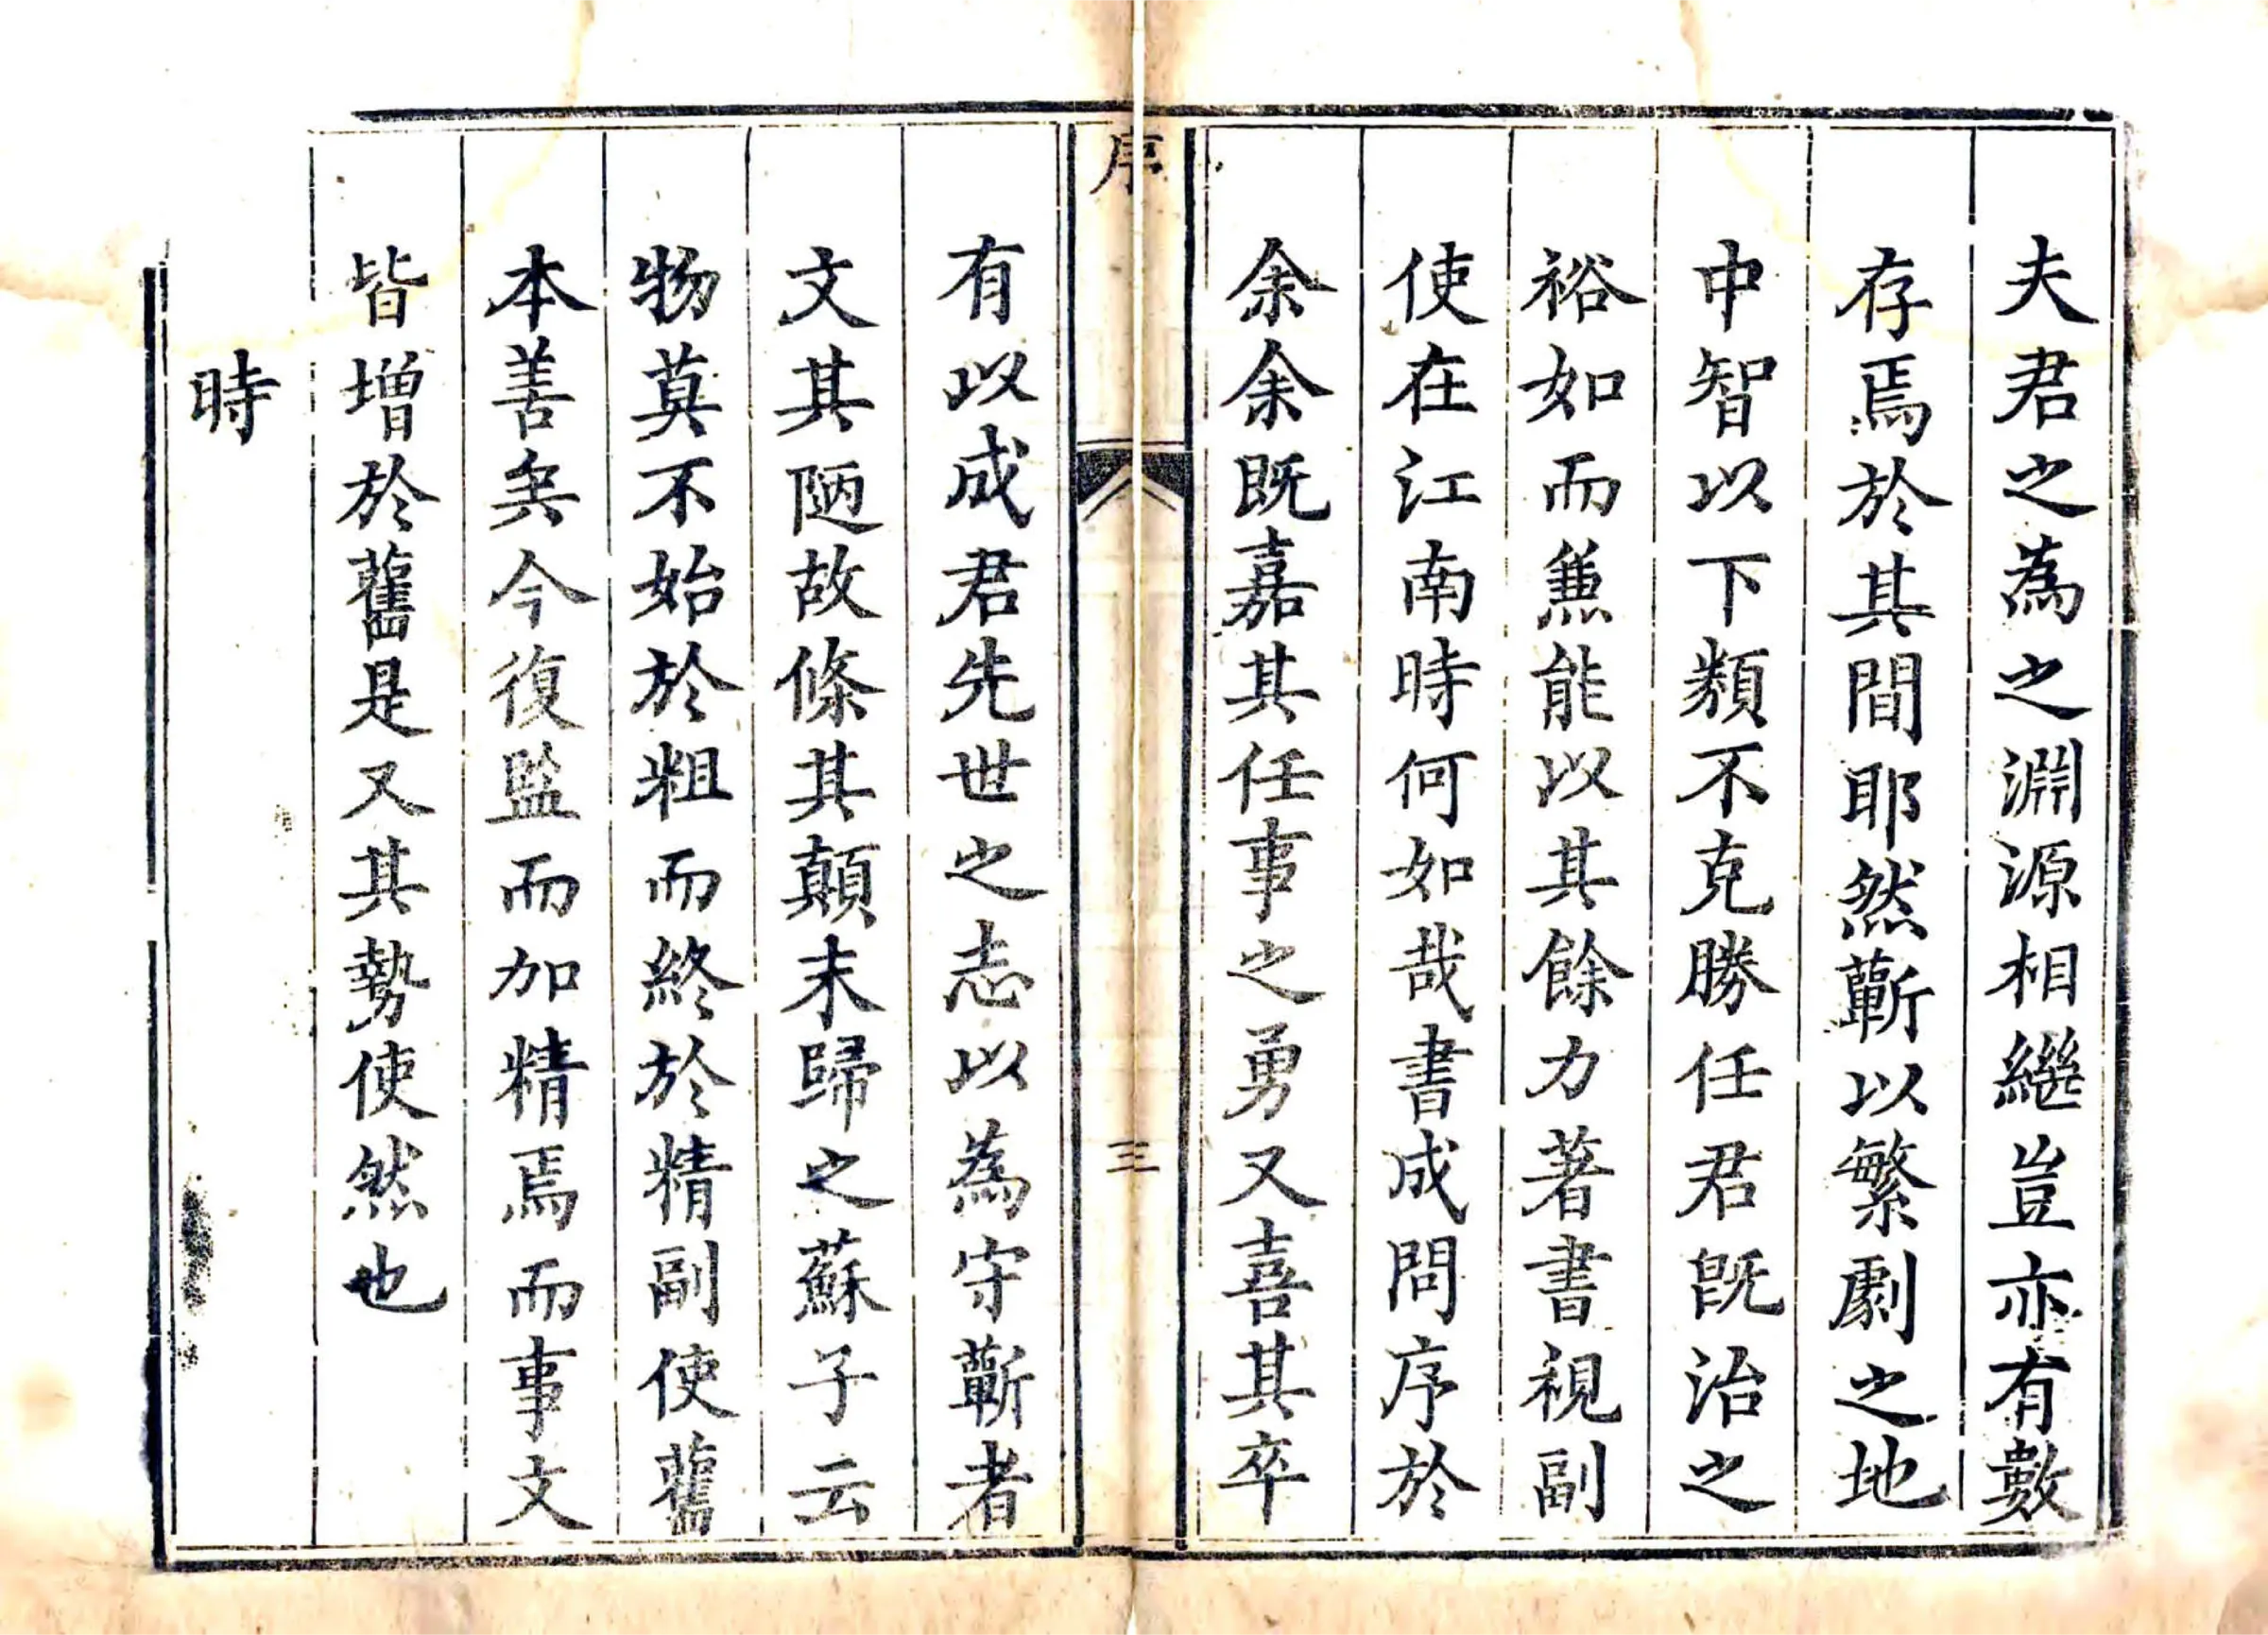 夫君之為之淵源相繼豈亦有數
存焉於其間耶然蘄以繁劇之地
中智以下類不克勝任君既治之
裕如而兼能以其餘力著書視副
使在江南時何如哉書成問序於
余余既嘉其任事之勇又喜其卒
序
三
有以成君先世之志以為守蘄者
文其陋故條其顛末歸之蘇子云
物莫不始於粗而終於精副使舊
本善矣今復監而加精焉而事文
皆增於舊是又其勢使然也
時